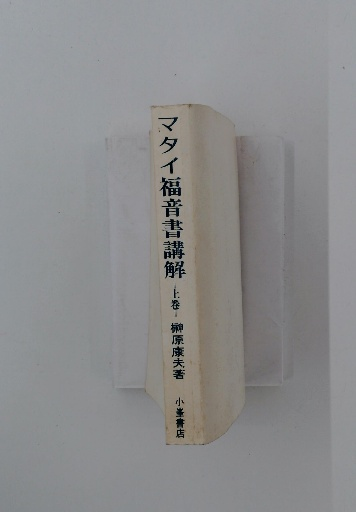 マタイ福音書講解
-上巻-
榊原康夫著
小峯書店